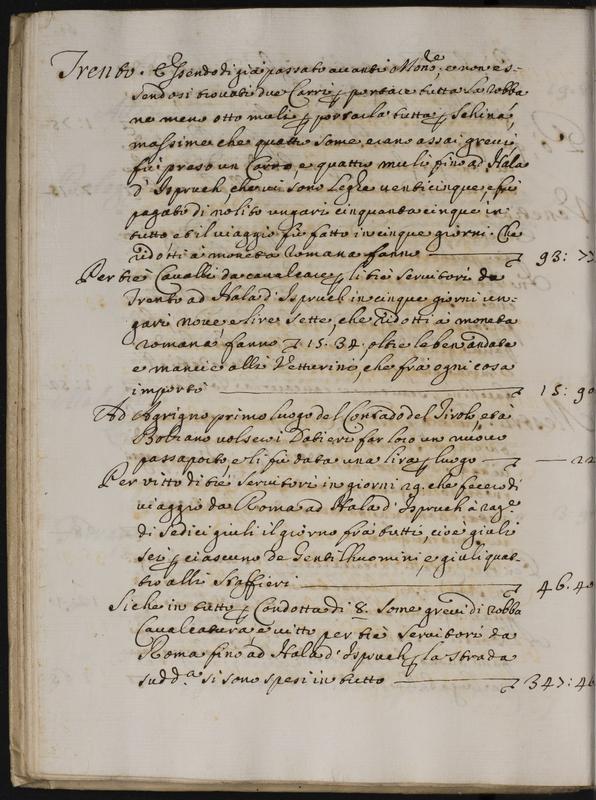 Trento. Essendo di già passato avanti Monsre, e non es-
sendosi trovati due Carri per portare tutta la robba
ne meno otto muli per portarla tutta per schina,
massime che quattro some erano assai grevi
fù preso un Carro, e quattro muli fino ad Hala
d'Ispruch, che vi sono leghe venticinque, e fù
pagato di nolito ungari cinquantacinque in
tutto et il viaggio fù fatto in cinque giorni. Che
ridotti à moneta Romana fanno 93: 75
Per trè Cavalli da cavalcare per li trè servitori da
Trento ad Hala d'Ispruch in cinque giorni un-
gari nove e lire sette, che ridotti à moneta
romana fanno 15. 34. oltre le ben andate
e mancie alli Vetturini, che frà ogni cosa
importò 15: 90
Ad Agrigno primo luogo del Contado del Tirolo, et a
Bolzano volsero i Datieri far loro un nuovo
passaporto, e li fù data una lira per luogo — 22
Per vitto di trè servitori in giorni 29. che fecero di
viaggio da Roma ad Hala d'Ispruch à rage
di sedici giuli il giorno frà tutti, cioè giuli
sei per ciascuno de Gentilhuomini, e giuli quat-
tro alli Staffieri 46. 40
Siche in tutto per Condotta di 8. some grevi di robba
Cavalcatura e vitto per trè servitori da
Roma fino ad Hala d'Ispruch per la strada
sudda si sono spesi in tutto 347: 46